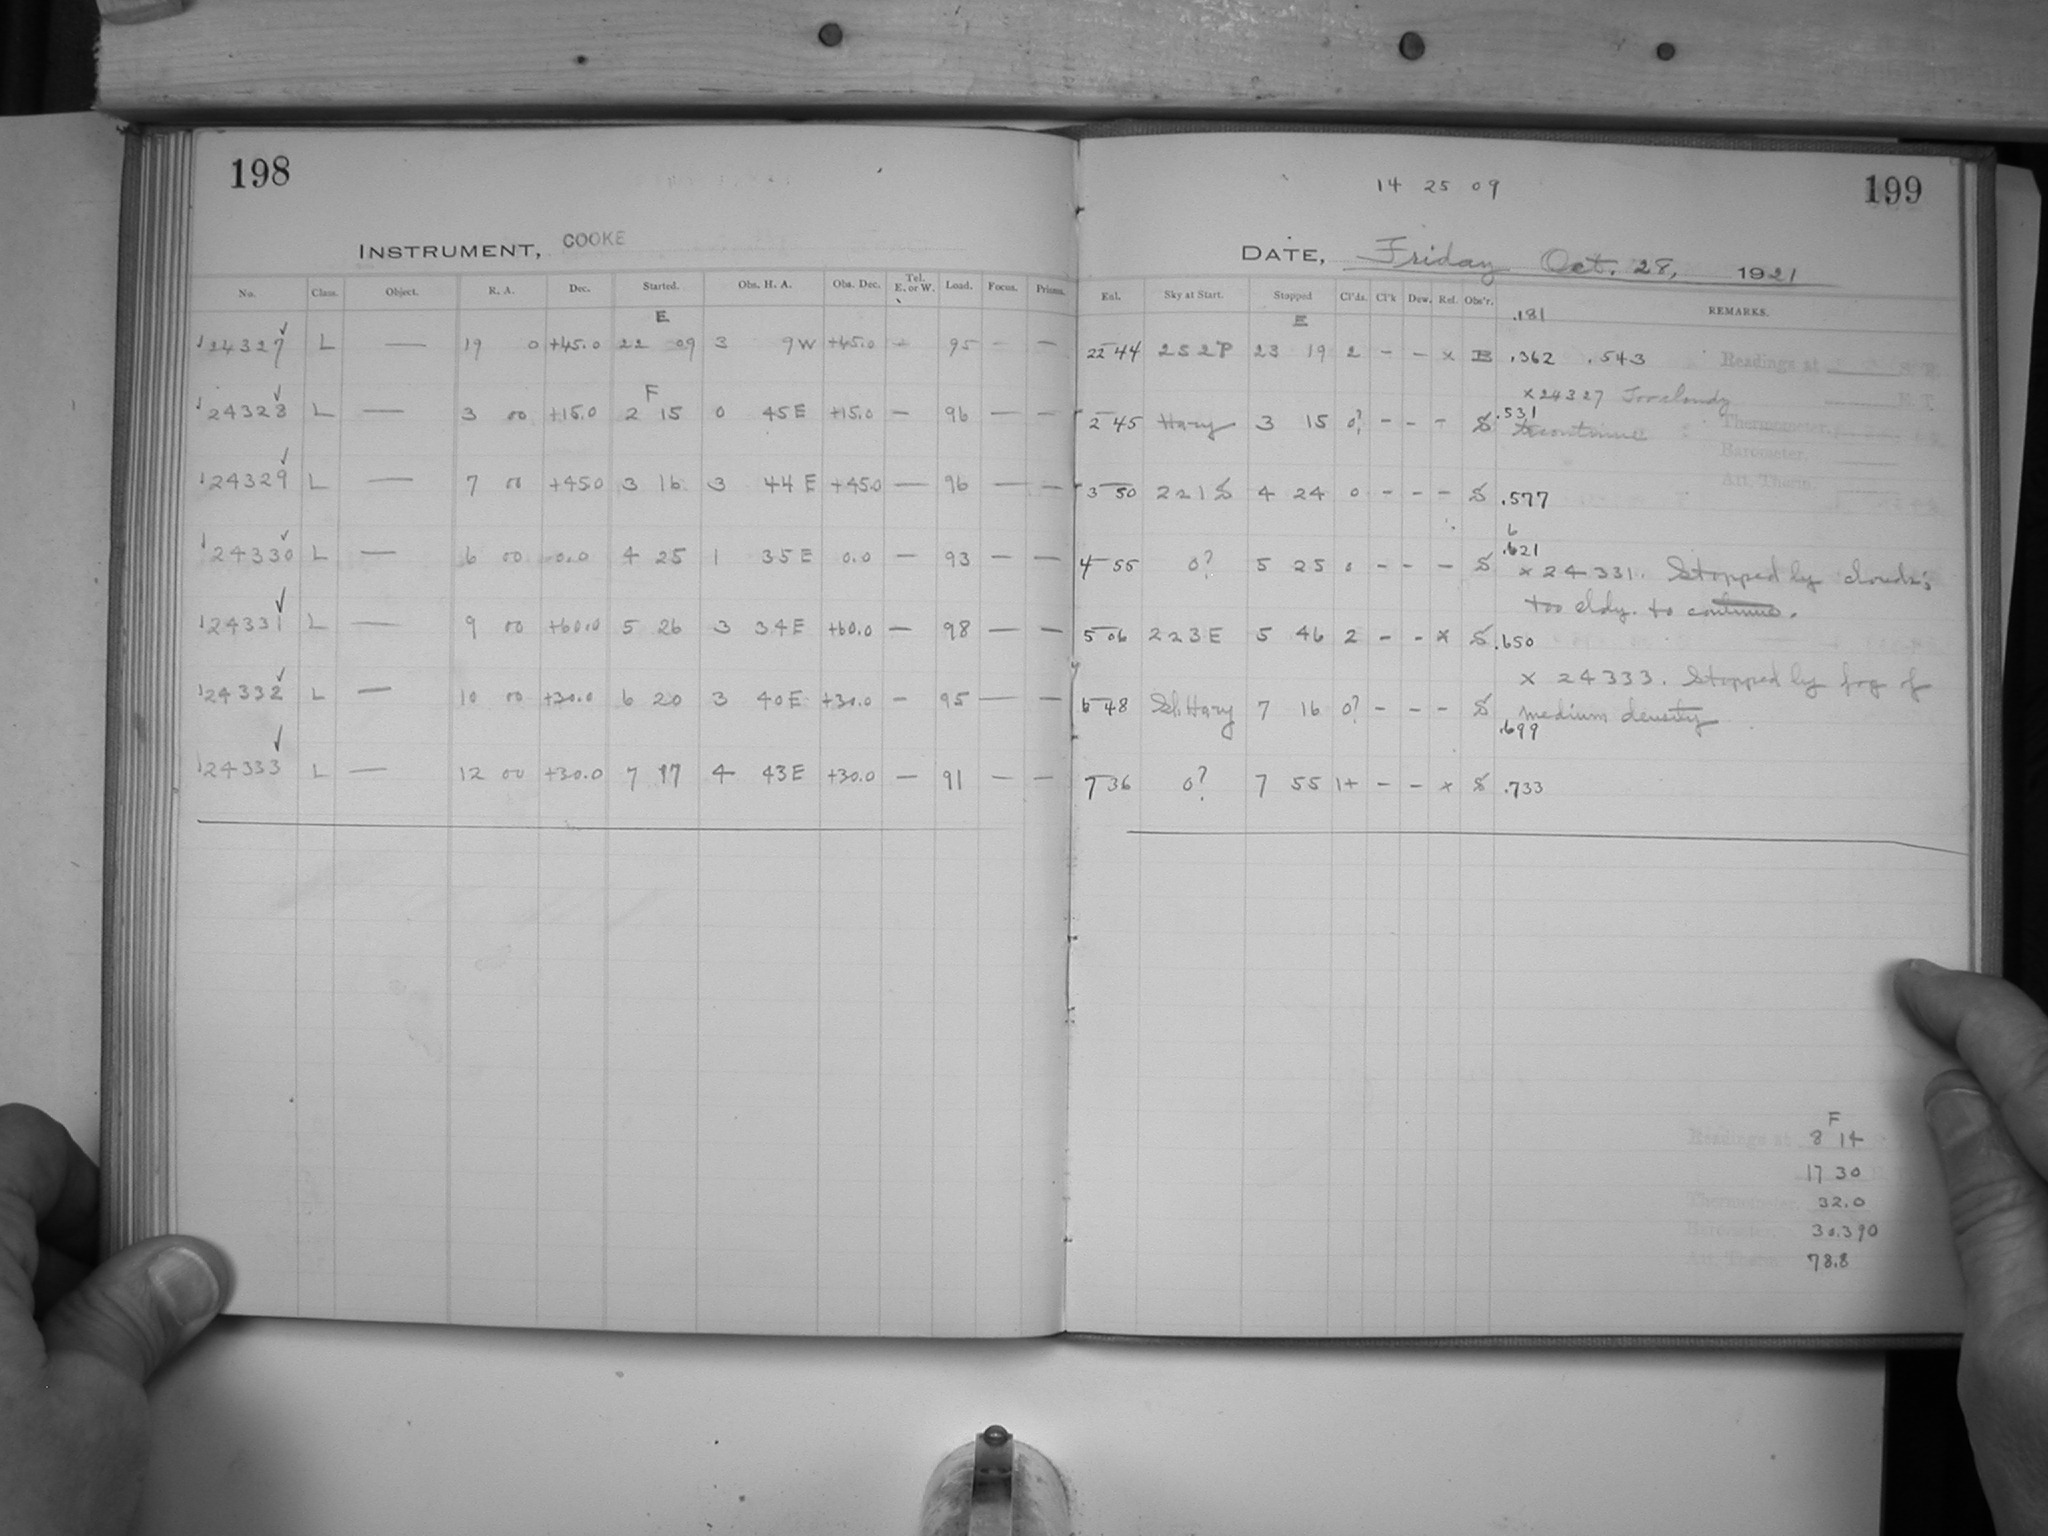 198
INSTRUMENT, COOKE
No. Class. Object. R. A. Dec. Started. Obs. H. A. Obs. Dec. Tel. E. or W. Load. Focus. Prisms.
E
24327 L — 19 0 +45.0 22 09 3 9W +45.0 - 95 - —
F
24328 L — 3 00 +15.0 2 15 0 45E +15.0 — 96 — —
24329 L — 7 00 +45.0 3 16 3 44E +45.0 — 96 — —
24330 L — 6 00 0.0 4 25 1 35E 0.0 — 93 — —
24331 L — 9 00 +60.0 5 26 3 34E +60.0 — 98 — —
24332 L — 10 00 +30.0 6 20 3 40E +30.0 - 95 — —
24333 L — 12 00 +30.0 7 17 4 43E +30.0 — 91 — —
14 25 09
199
DATE, Friday Oct. 28, 1921
Eql. Sky at Start. Stopped Cl'ds. Cl'k Dew. Rel. Obs'r. REMARKS.
E .181
22 44 252P 23 19 2 - - x B .362 .543
x 24327 Too cloudy
2 45 Hazy 3 15 0? - - - S .531 to continue
3 50 221S 4 24 0 - - - S .577
6
4 55 0? 5 25 0 - - - S .621
x 24331. Stopped by clouds;
too cldy. to continue.
5 06 223E 5 46 2 - - x S .650
x 24333. Stopped by fog of
6 48 Sl. Hazy 7 16 0? - - - S medium density
.699
7 36 0? 7 55 1+ - - x S .733
F
Readings at 8 14
17 30
Thermometer, 32.0
Barometer, 30.390
Att. Therm. 78.8